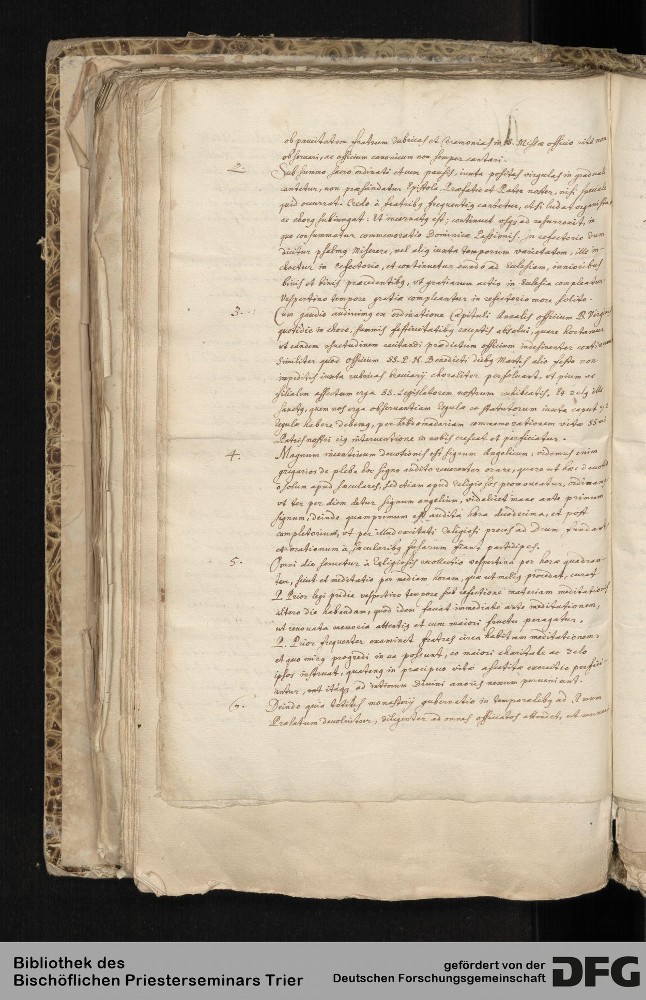 ob paucitatem fratrum rubricas et ceremonias in SS. Missæ officio rite non
observari, ac officium canonicum non semper cantari.
2. Sub summo sacro ordinati otium pausis, iuxta positas virgulas in graduali
cantetur, non præscindatur Epistola, Præfatio et Pater noster, nisi speciale
quid occurrat. Credo à fratribq frequentiq cantetur, etsi ludat organista
ac chorq subiungat: Et incarnatq est; continuet usq ad resurrexit, in
quo consummatur commemoratio Dominicæ Passionis. In refectorio dum
dicitur psalmq Miserere, vel aliq iuxta temporum varietatem, ille in-
choetur in refectorio, et continuetur eundo ad Ecclesiam, junioribus
binis et binis præcedentibq, ut gratiarum actio in Ecclesia compleatur
Vespertino tempore gratiæ compleantur in refectorio more solito.
3. Cum gaudio audivimq ex ordinatione Capituli Annalis officium B. Virginis
quotidie in choro, summis festivitatibq exceptis absolui, quare hortamur
ut eandem consuetudinem recitandi prædictum officium indesinenter
similiter quod officium SS. P. N. Benedicti diebq Martis alio festo non
impeditis iuxta rubricas breviarij choraliter persoluant, et pium ac
filialem affectum erga SS. Legislatorem nostrum exhibeatis. Et zelq ille
sanctq, quem nos erga observantiam regulæ ac statutorum iuxta caput 72
regulæ habere debemq, per hebdomadariam commemorationem vitæ SS.mi
Patris nostri eiq interventione in nobis crescat et perficiatur.
4. Magnum incentivum devotionis est signum Angelicum, videmus enim
gregarios de plebe hoc signo audito reverenter orare, quare ut hæc devotio
solum apud sæculares, sed etiam apud religiosos promoveatur, ordinamus
ut ter per diem detur signum angelicum, videlicet mane ante primum
signum, deinde quamprimum est audita hora duodecima, et post
completorium, ut per illud excitati religiosi preces ad Deum fundant
et orationum à sæcularibq fusarum fiant participes.
5. Omni die servetur à religiosis recollectio vespertina per horæ quadran-
tem, sicut et meditatio per mediam horam, quæ ut meliq procedat, curat
P. Prior legi pridie vespertino tempore sub refectione materiam meditationis
altero die habendam, quod idem faciat immediate ante meditationem,
ut renovata memoria attentiq et cum maiori fructu peragatur.
P. Prior frequenter examinet fratres circa habitam meditationem,
et quo minq progredi in ea possunt, eo maiori charitate ac zelo
ipsos instruat, quatenq in præcipuo vitæ asceticæ exercitio perfici-
antur, ad intimum Divini amoris nexum perveniant.
6. Deinde quia totius monasterij gubernatio in temporalibq ad Rmum
Prælatum devolvitur, diligenter ad omnes officiatos attendat, et
Bibliothek des
Bischöflichen Priesterseminars Trier
gefördert von der
Deutschen Forschungsgemeinschaft
DFG